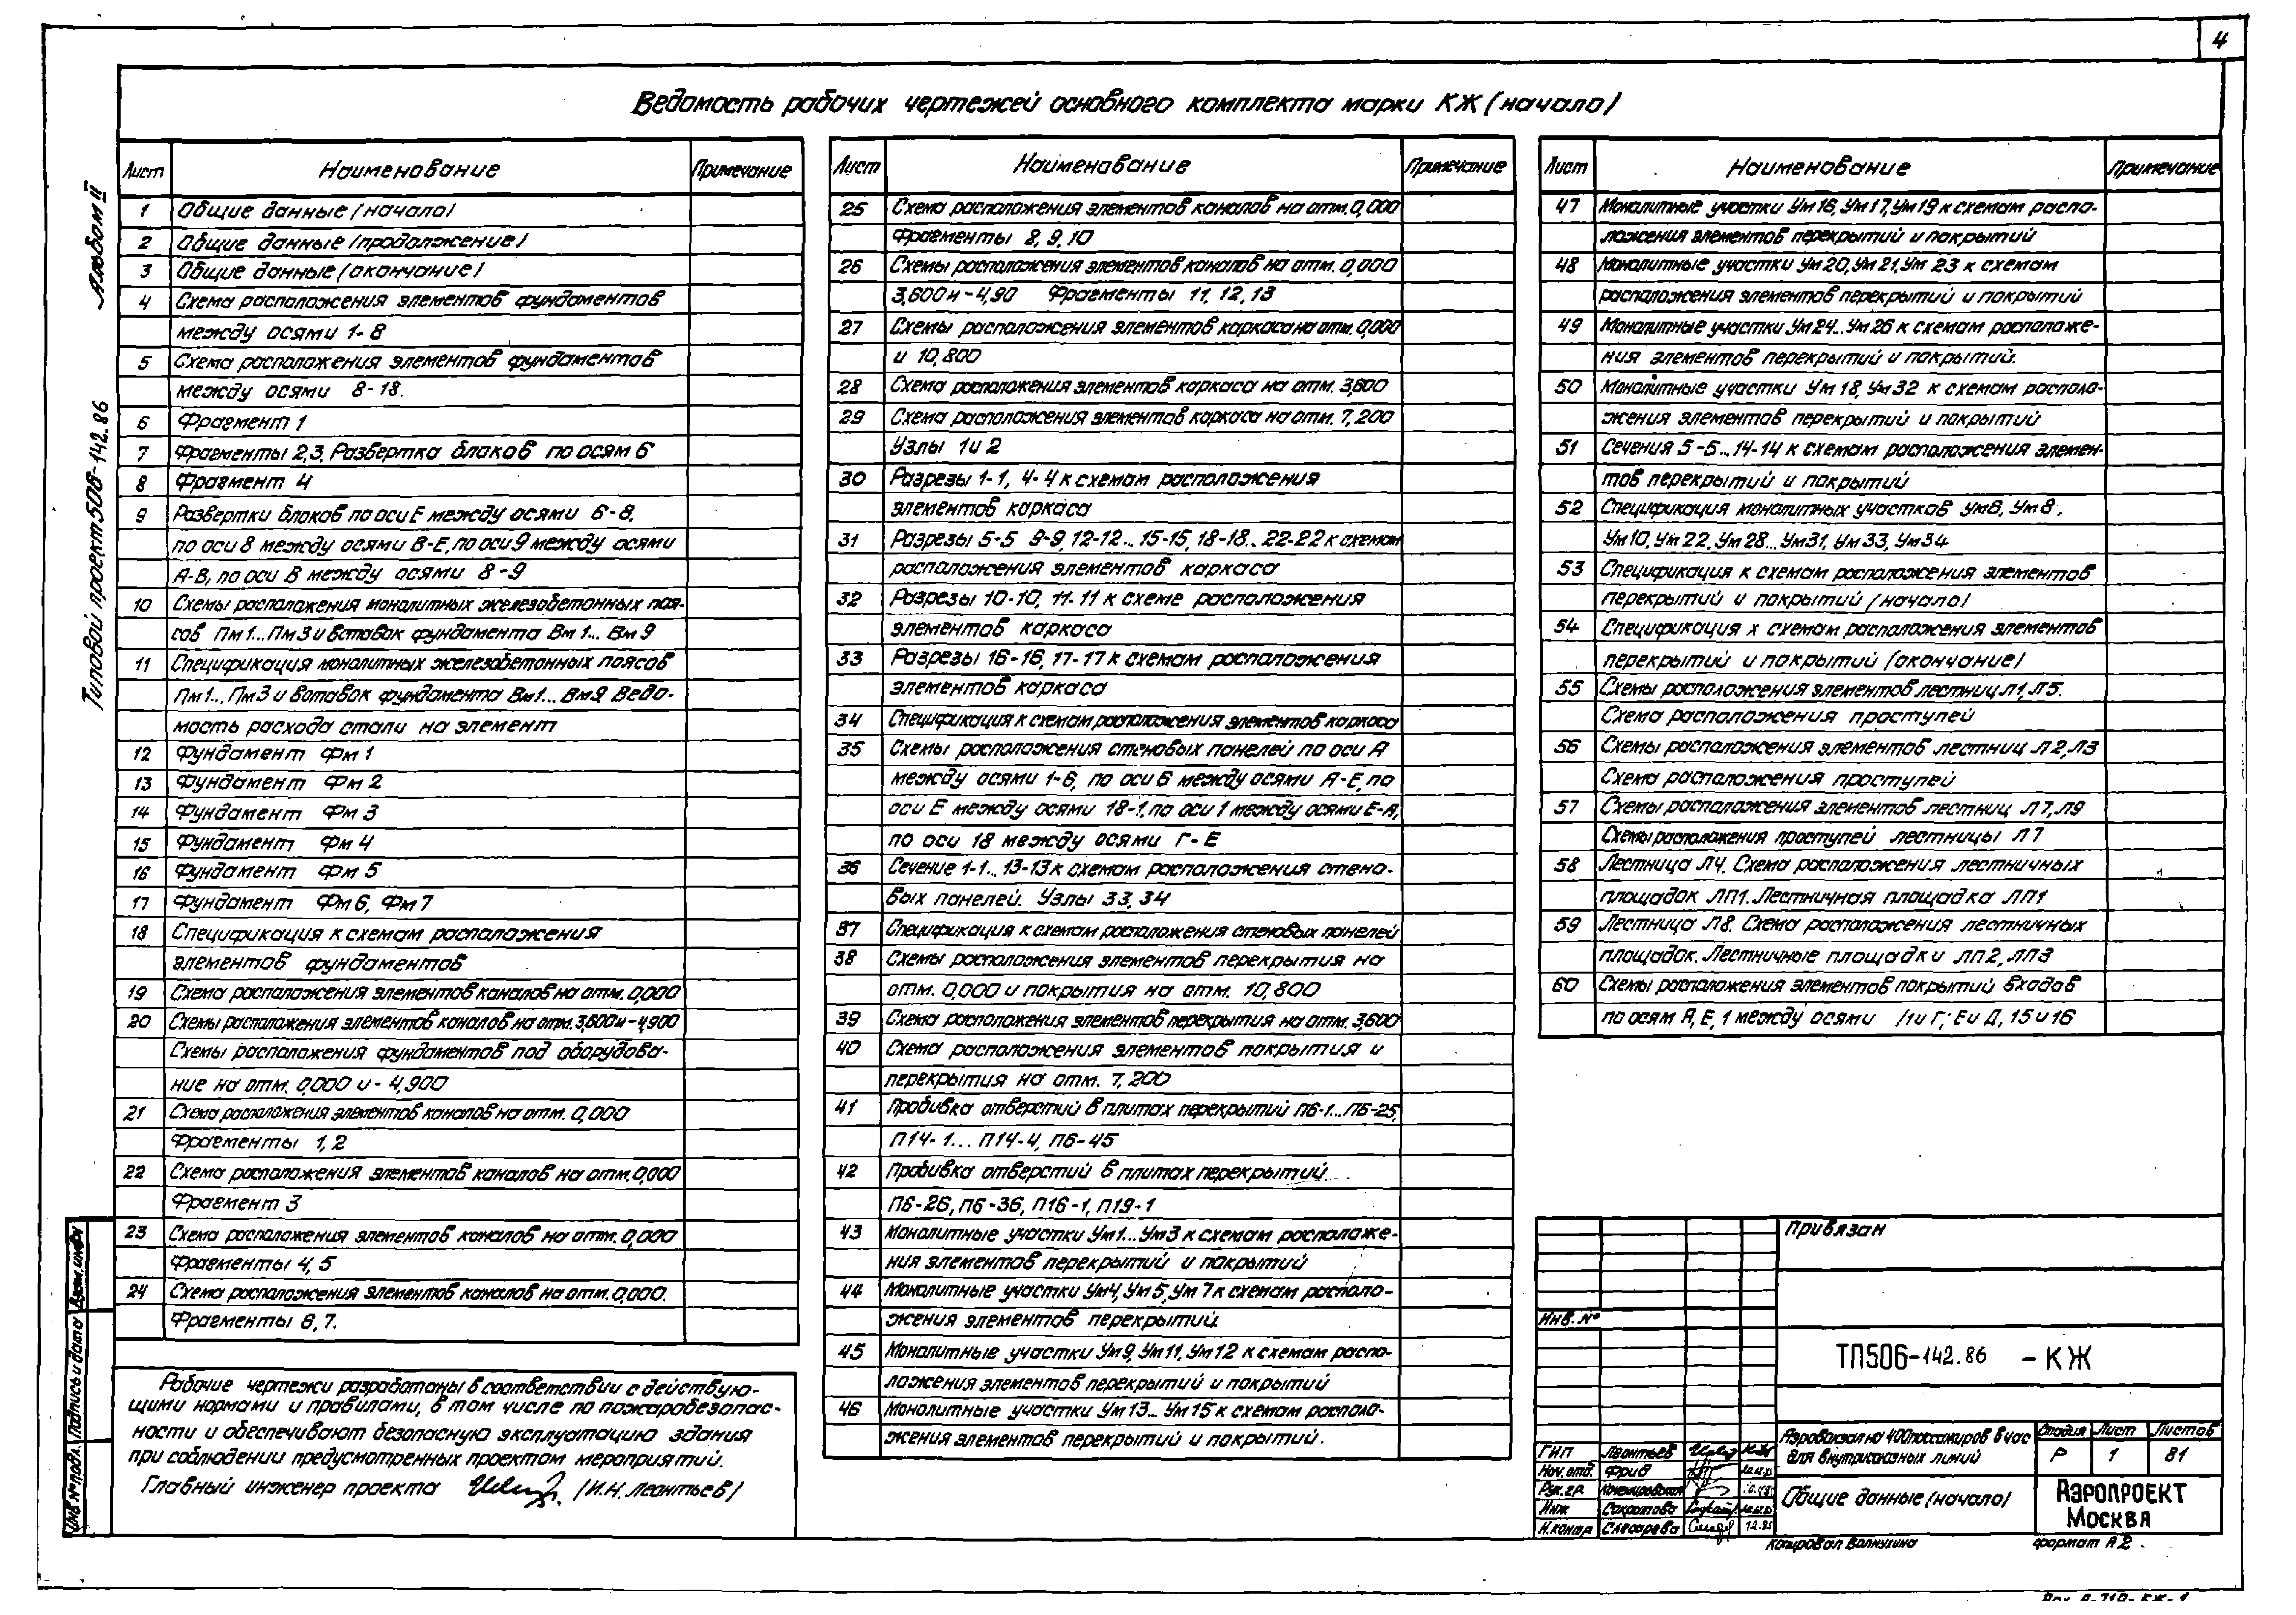 4
Ведомость рабочих чертежей основного комплекта марки КЖ (начало)
Альбом II
Типовой проект 506-142.86
Лист Наименование Примечание
1 Общие данные (начало)
2 Общие данные (продолжение)
3 Общие данные (окончание)
4 Схема расположения элементов фундаментов
между осями 1-8
5 Схема расположения элементов фундаментов
между осями 8-18.
6 Фрагмент 1
7 Фрагменты 2,3. Развертка блоков по осям 6
8 Фрагмент 4
9 Развертки блоков по оси Е между осями 6-8,
по оси 8 между осями В-Е, по оси 9 между осями
А-В, по оси В между осями 8-9
10 Схемы расположения монолитных железобетонных поя-
сов Пм1... Пм3 и вставок фундамента Вм1... Вм9
11 Спецификация монолитных железобетонных поясов
Пм1... Пм3 и вставок фундамента Вм1... Вм9. Ведо-
мость расхода стали на элемент
12 Фундамент Фм 1
13 Фундамент Фм 2
14 Фундамент Фм 3
15 Фундамент Фм 4
16 Фундамент Фм 5
17 Фундамент Фм 6, Фм 7
18 Спецификация к схемам расположения
элементов фундаментов
19 Схема расположения элементов каналов на отм. 0,000
20 Схемы расположения элементов каналов на отм. 3,600 и -4,900
Схемы расположения фундаментов под оборудова-
ние на отм. 0,000 и - 4,900
21 Схема расположения элементов каналов на отм. 0,000
Фрагменты 1, 2
22 Схема расположения элементов каналов на отм. 0,000
Фрагмент 3
23 Схема расположения элементов каналов на отм. 0,000
Фрагменты 4, 5
24 Схема расположения элементов каналов на отм. 0,000.
Фрагменты 6, 7.
Рабочие чертежи разработаны в соответствии с действую-
щими нормами и правилами, в том числе по пожаробезопас-
ности и обеспечивают безопасную эксплуатацию здания
при соблюдении предусмотренных проектом мероприятий.
Главный инженер проекта (И.Н. Леонтьев)
Лист Наименование Примечание
25 Схема расположения элементов каналов на отм. 0,000
Фрагменты 8, 9, 10
26 Схемы расположения элементов каналов на отм. 0,000
3,600 и -4,90 Фрагменты 11, 12, 13
27 Схемы расположения элементов каркаса на отм. 0,000
и 10,800
28 Схема расположения элементов каркаса на отм. 3,600
29 Схема расположения элементов каркаса на отм. 7,200
Узлы 1 и 2
30 Разрезы 1-1, 4-4 к схемам расположения
элементов каркаса
31 Разрезы 5-5 9-9, 12-12... 15-15, 18-18.. 22-22 к схемам
расположения элементов каркаса
32 Разрезы 10-10, 11-11 к схеме расположения
элементов каркаса
33 Разрезы 16-16, 17-17 к схемам расположения
элементов каркаса
34 Спецификация к схемам расположения элементов каркаса
35 Схемы расположения стеновых панелей по оси А
между осями 1-6, по оси 6 между осями А-Е, по
оси Е между осями 18-1, по оси 1 между осями Е-А,
по оси 18 между осями Г-Е
36 Сечение 1-1... 13-13 к схемам расположения стено-
вых панелей. Узлы 33, 34
37 Спецификация к схемам расположения стеновых панелей
38 Схемы расположения элементов перекрытия на
отм. 0,000 и покрытия на отм. 10,800
39 Схема расположения элементов перекрытия на отм. 3,600
40 Схема расположения элементов покрытия и
перекрытия на отм. 7,200
41 Пробивка отверстий в плитах перекрытий П6-1...П6-25,
П14-1... П14-4, П6-45
42 Пробивка отверстий в плитах перекрытий
П6-26, П6-36, П16-1, П19-1
43 Монолитные участки Ум1... Ум3 к схемам расположе-
ния элементов перекрытий и покрытий
44 Монолитные участки Ум4, Ум5, Ум7 к схемам располо-
жения элементов перекрытий
45 Монолитные участки Ум9, Ум11, Ум12 к схемам распо-
ложения элементов перекрытий и покрытий
46 Монолитные участки Ум13... Ум15 к схемам распола-
жения элементов перекрытий и покрытий.
Лист Наименование Примечание
47 Монолитные участки Ум16, Ум17, Ум19 к схемам распо-
ложения элементов перекрытий и покрытий
48 Монолитные участки Ум20, Ум21, Ум 23 к схемам
расположения элементов перекрытий и покрытий
49 Монолитные участки Ум24... Ум26 к схемам расположе-
ния элементов перекрытий и покрытий.
50 Монолитные участки Ум18, Ум32 к схемам располо-
жения элементов перекрытий и покрытий
51 Сечения 5-5... 14-14 к схемам расположения элемен-
тов перекрытий и покрытий
52 Спецификация монолитных участков Ум6, Ум8,
Ум10, Ум22, Ум28... Ум31, Ум33, Ум34
53 Спецификация к схемам расположения элементов
перекрытий и покрытий (начало)
54 Спецификация к схемам расположения элементов
перекрытий и покрытий (окончание)
55 Схемы расположения элементов лестниц Л1, Л5.
Схема расположения проступей
56 Схемы расположения элементов лестниц Л2, Л3
Схема расположения проступей
57 Схемы расположения элементов лестниц Л7, Л9
Схемы расположения проступей лестницы Л7
58 Лестница Л4. Схема расположения лестничных
площадок ЛП1. Лестничная площадка ЛП1
59 Лестница Л8. Схема расположения лестничных
площадок. Лестничные площадки ЛП2, ЛП3
60 Схемы расположения элементов покрытий входов
по осям А, Е, 1 между осями 1 и Г; Е и Д, 15 и 16
Привязан
Инв. №
ТП506-142.86 -КЖ
Аэровокзал на 400 пассажиров в час
для внутрисоюзных линий
Стадия Лист Листов
Р 1 81
Общие данные (начало)
АЭРОПРОЕКТ
МОСКВА
ГИП Леонтьев
Нач. отд. Фрид
Рук. гр.
Инж Сократова
Н. контр Слесарева 12.85
Копировал Формат А2
Инв № подл. Подпись и дата Взам. инв №